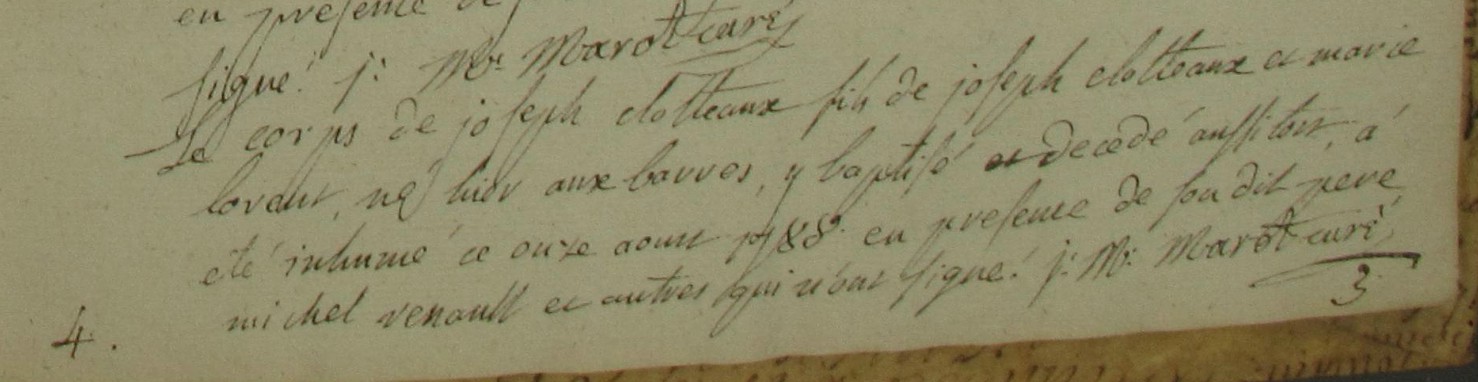 en presence de
signé j: Mr: Marot curé
Le corps de joseph clotteaux fils de joseph clotteaux et marie
lorant, né hier aux barres, y baptisé et decedé aussitost, a
eté inhumé ce onze aoust 1788. en presence de son dit pere
michel renault et autres qui n'ont signé. j: Mr: Marot curé
4.
3